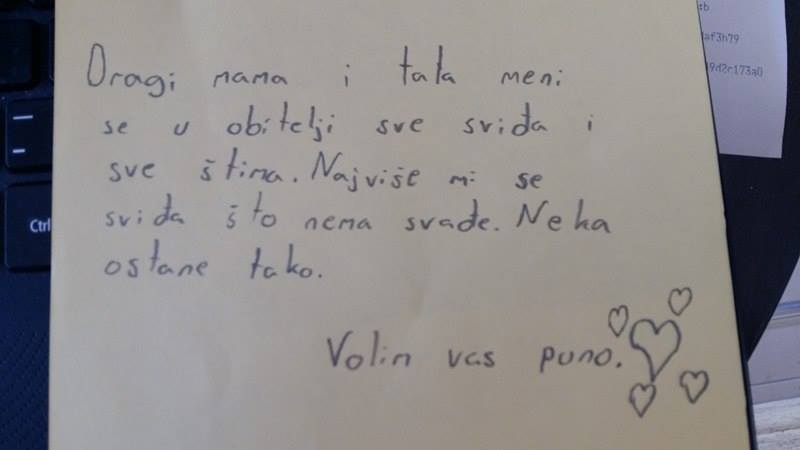 Dragi mama i tata meni
se u obitelji sve sviđa i
sve štima. Najviše mi se
sviđa što nema svađe. Neka
ostane tako.
Volin vas puno.
Ctrl
af3h79
9d2c173a0